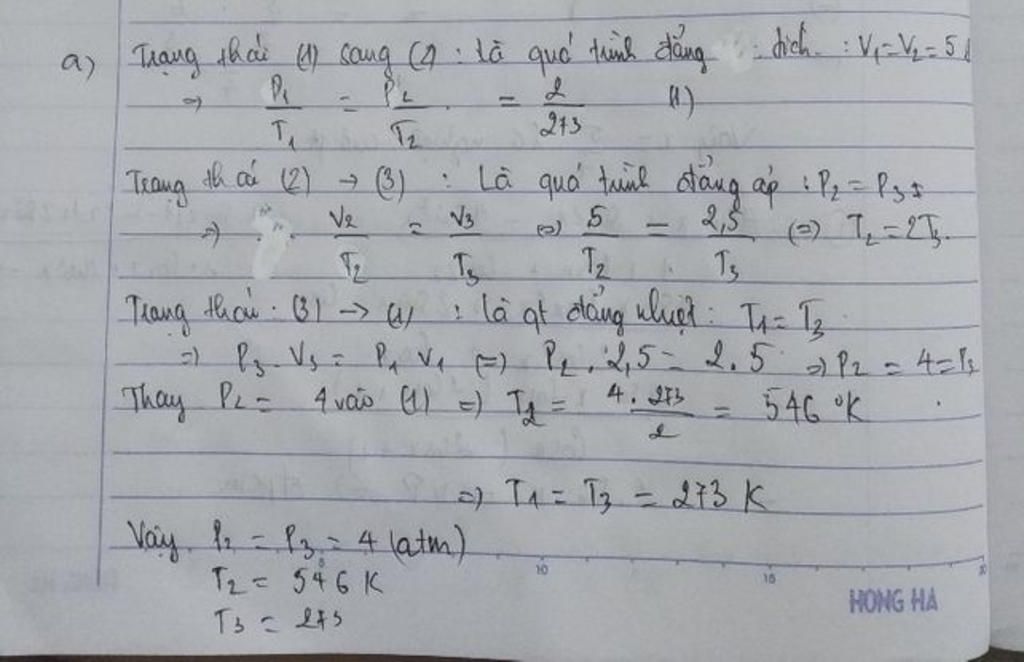 a) Trạng thái (1) sang (2) : là quá trình đẳng tích : V₁=V₂=5l
=> P₁/T₁ = P₂/T₂ = 2/273 (1)
Trạng thái (2) → (3) : Là quá trình đẳng áp : P₂ = P₃
=> V₂/T₂ = V₃/T₃ (=) 5/T₂ = 2,5/T₃ (=) T₂ = 2T₃.
Trạng thái (3) → (1) : là qt đẳng nhiệt : T₁ = T₃
=) P₃ . V₃ = P₁ V₁ (=) P₂ . 2,5 = 2.5 =) P₂ = 4 = P₃
Thay P₂ = 4 vào (1) =) T₂ = 4.273/2 = 546 °K
=) T₁ = T₃ = 273 K
Vậy P₂ = P₃ = 4 (atm)
T₂ = 546 K
T₃ = 273
10 15 20
HONG HA